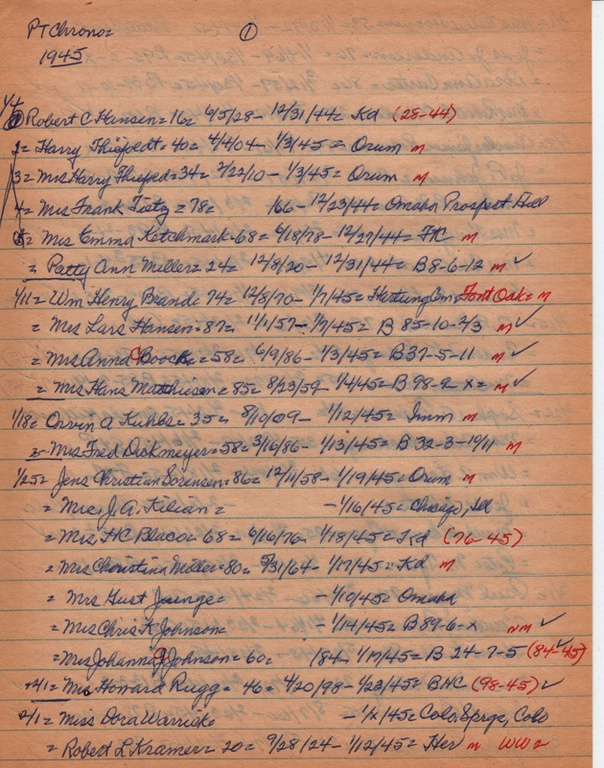 PT Chrono= ①
1945
1/4
1= Robert C Hansen= 16= 6/5/28- 12/31/44= Kd (28-44)
2= Harry Thiefoldt= 40= 4/4/04- 1/3/45= Orum m
3= Mrs Harry Thiefold= 34= 2/22/10- 1/3/45= Orum m
4= Mrs Frank Tietz= 78= 166- 12/23/44= Omaha Prospect Hill
5= Mrs Emma Ketchmark= 68= 6/18/78- 12/27/44= FtC m
= Patty Ann Miller= 24= 12/8/20- 12/31/44= B8-6-12 m ✓
1/11= Wm Henry Brand= 74= 12/8/70- 1/7/45= Hartung Cm Font Oak= m
= Mrs Lars Hansen= 87= 11/1/57- 1/7/45= B 85-10-2/3 m ✓
= Mrs Anna C Boock= 58= 6/9/86- 1/3/45= B37-5-11 m ✓
= Mrs Hans Matthiesen= 85= 8/23/59- 1/4/45= B 98-2 x= m ✓
1/18= Orvin A Kuhbs= 35= 8/10/09- 1/12/45= Imm m
= Mrs Fred Dickmeyer= 58= 3/16/86- 1/13/45= B 32-3-19/11 m
1/25= Jens Christian Sorensen= 86= 12/11/58- 1/19/45= Orum m
= Mrs. J. A. Kilian= -1/16/45= Chicago, Ill
= Mrs HC Blaco= 68= 6/16/76- 1/18/45= Kd (76-45)
= Mrs Christina Miller= 80= 5/31/64- 1/17/45= Kd m
= Mrs Gust Juenge= -1/10/45= Omaha
= Mrs Chris K Johnson= 1/14/45= B89-6-x nm ✓
= Mrs Johanna J Johnson= 60= 184- 1/19/45= B 24-7-5 (84-45) ✓
2/1= Mrs Howard Rugg= 46= 4/20/98- 1/23/45= BHC (98-45) ✓
2/1= Miss Dora Warrick -1/x/45= Colo. Sprgs, Colo
= Robert L Kramer= 20= 9/28/24- 1/12/45= Her m WW2